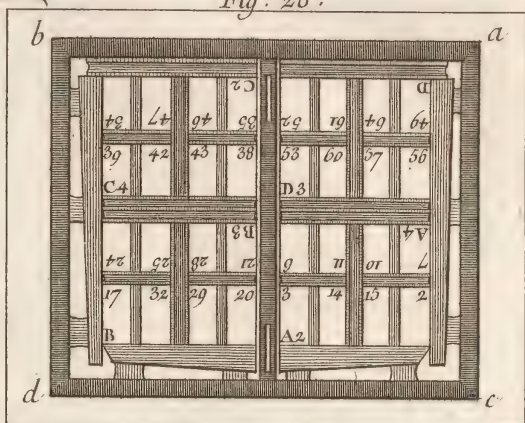 Fig.
b a
C2 D
34 47 46 35 52 61 64 49
39 42 43 38 53 60 57 56
C4 D3
B3 A4
24 25 28 21 6 11 10 7
17 32 29 20 3 14 15 2
B A2
d c